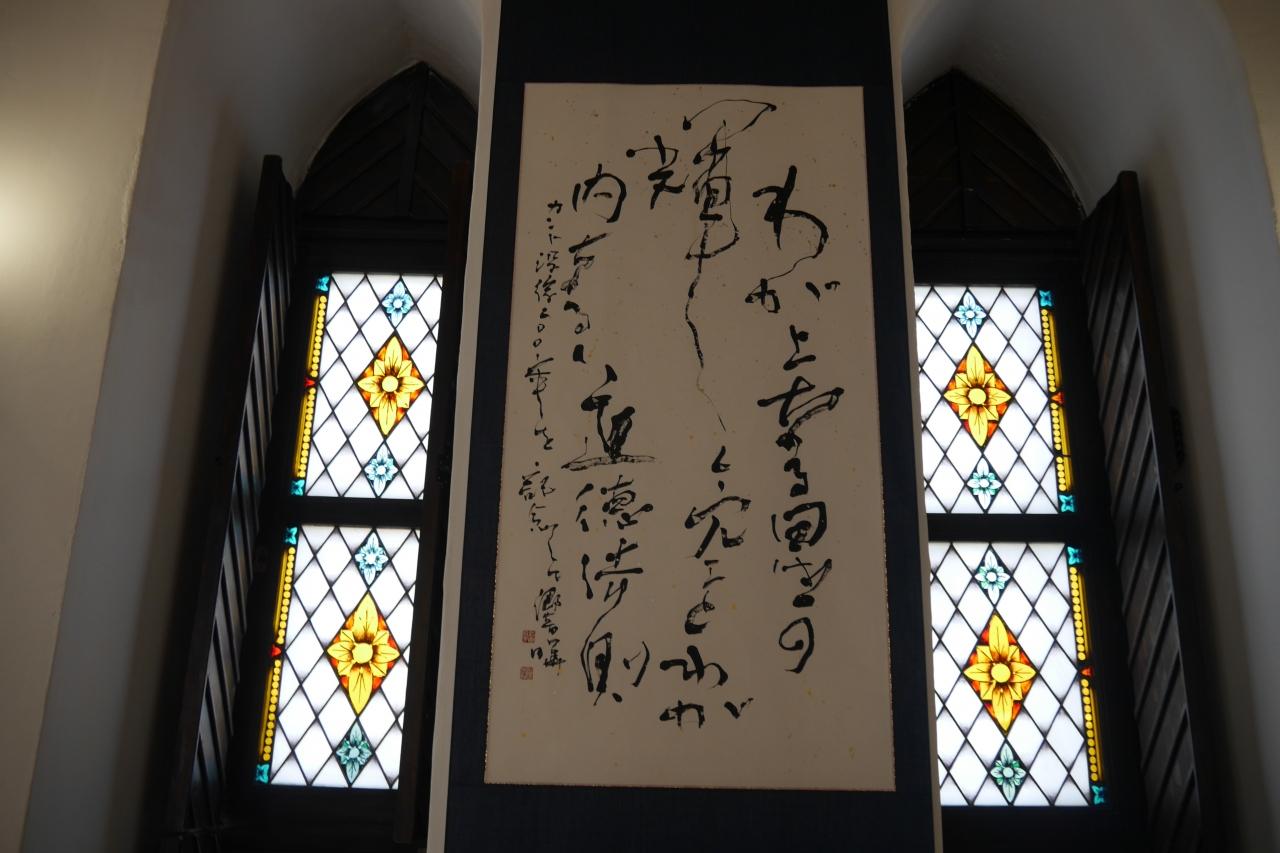 わが上なる星の
輝しき空とわが
内なる道徳法則
カント没後二〇〇年を記念して